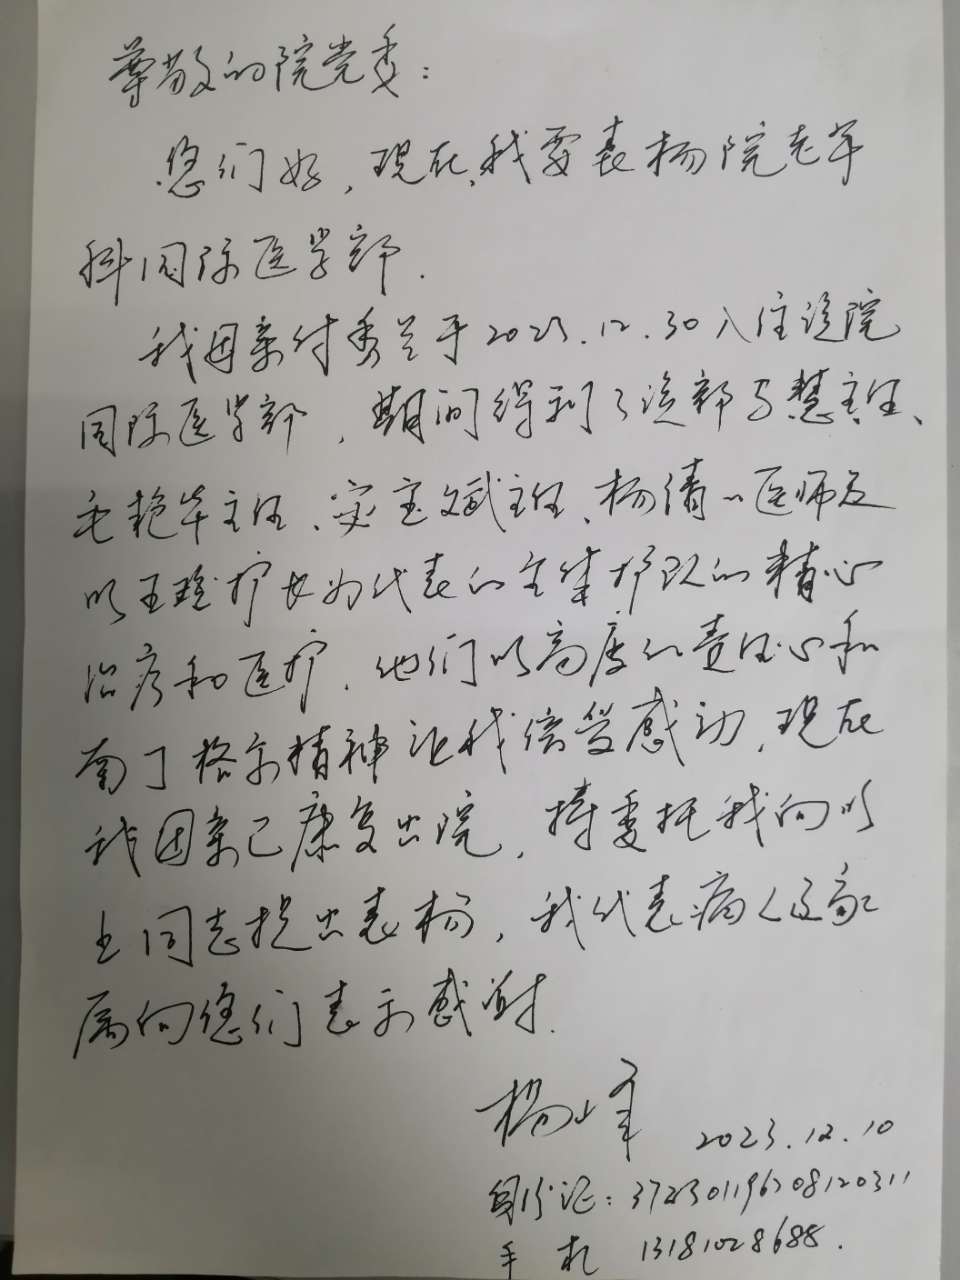 尊敬的院党委：
您们好，现在，我要表杨院老年
科国际医学部.
我母亲付秀兰于2023.12.30入住该院
国际医学部，期间得到了该部马慧主任、
毛艳华主任、安宝斌主任、杨倩一医师及
以王瑶护长为代表的全体护队的精心
治疗和医护.他们以高度的责任心和
南丁格尔精神让我倍受感动.现在
我母亲已康复出院，特委托我向以
上同志提出表杨，我代表病人及家
属向您们表示感谢.
杨峰 2023.12.10
身份证：
手机 13181028688.